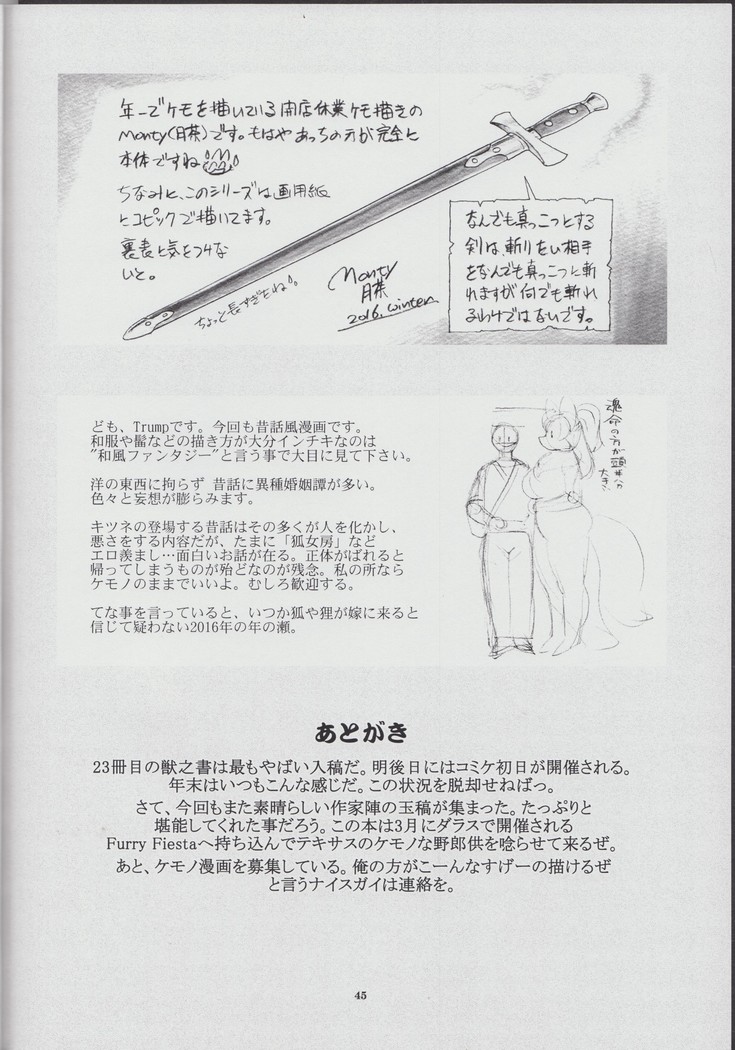 年一でケモを描いている開店休業ケモ描きの
Monty(月茶)です。もはやあっちの方が完全に
本体ですね
ちなみに、このシリーズは画用紙
にコピックで描いてます。
裏表に気をつけな
いと。
ちょっと長すぎたね。
Monty
月茶
2016.winter
なんでも真っこつにする
剣は、斬りたい相手
をなんでも真っこつに斬
れますが何でも斬れ
るわけではないです。
ども、Trumpです。今回も昔話風漫画です。
和服や髷などの描き方が大分インチキなのは
"和風ファンタジー"と言う事で大目に見て下さい。
洋の東西に拘らず 昔話に異種婚姻譚が多い。
色々と妄想が膨らみます。
キツネの登場する昔話はその多くが人を化かし、
悪さをする内容だが、たまに「狐女房」など
エロ羨まし…面白いお話が在る。正体がばれると
帰ってしまうものが殆どなのが残念。私の所なら
ケモノのままでいいよ。むしろ歓迎する。
てな事を言っていると、いつか狐や狸が嫁に来ると
信じて疑わない2016年の年の瀬。
命の方が頭半分
大きい
あとがき
23冊目の獣之書は最もやばい入稿だ。明後日にはコミケ初日が開催される。
年末はいつもこんな感じだ。この状況を脱却せねばっ。
さて、今回もまた素晴らしい作家陣の玉稿が集まった。たっぷりと
堪能してくれた事だろう。この本は3月にダラスで開催される
Furry Fiestaへ持ち込んでテキサスのケモノな野郎供を唸らせて来るぜ。
あと、ケモノ漫画を募集している。俺の方がこーんなすげーの描けるぜ
と言うナイスガイは連絡を。
45